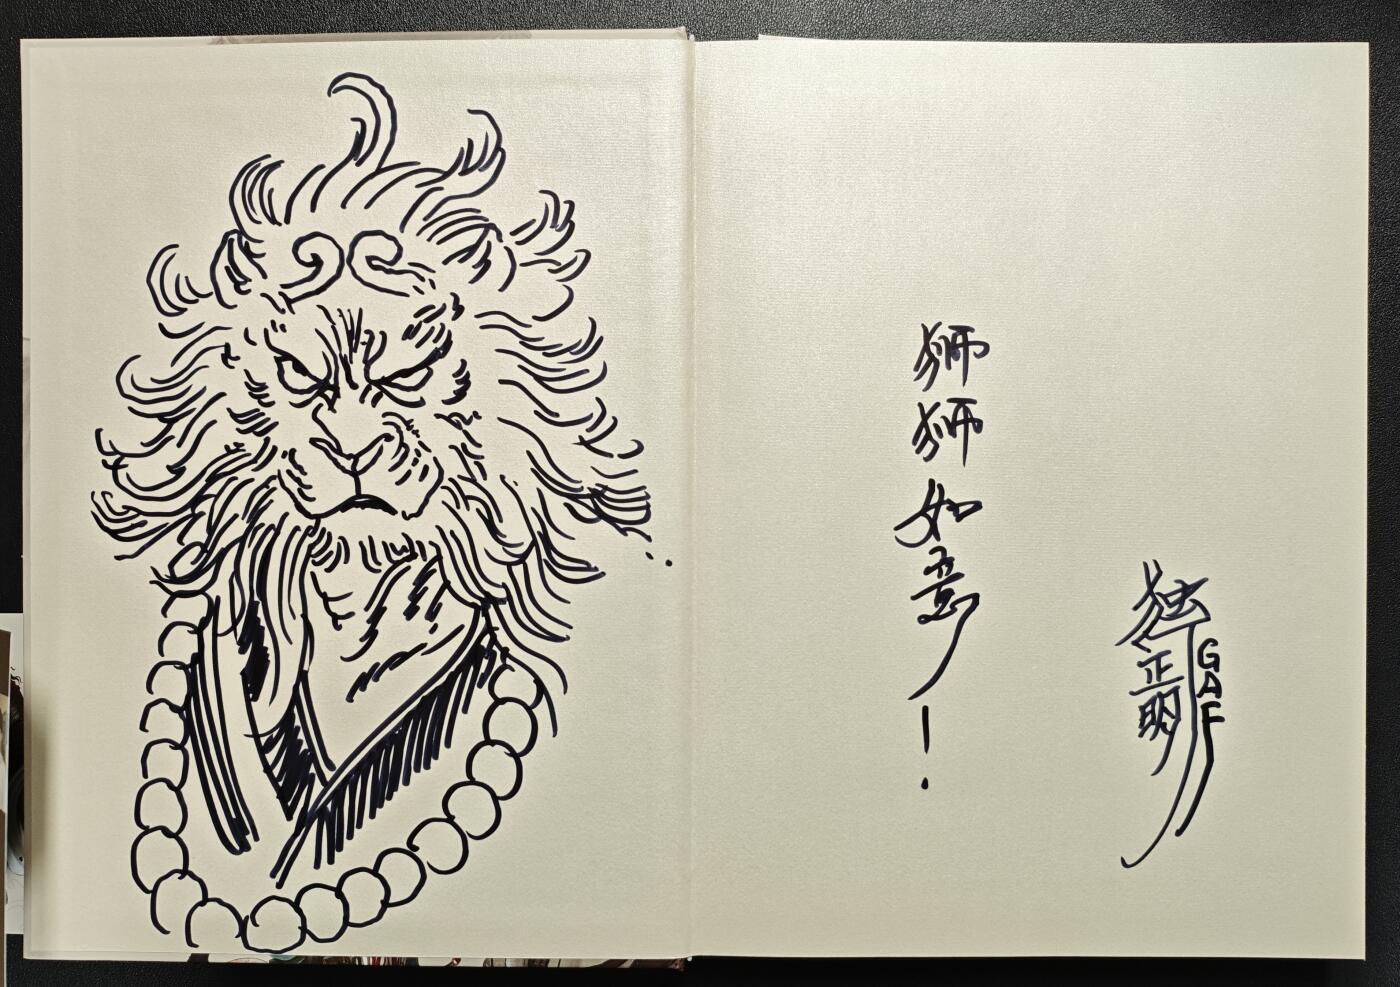 狮狮如意!
独正明
GAF